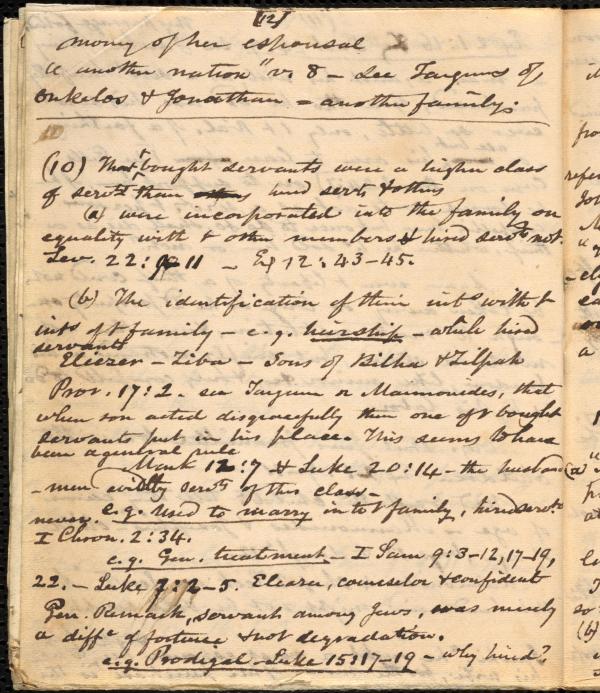 [12]
mony of her espousal
"a another nation" v. 8 – See Targums of
Onkelos & Jonathan = another family.
(10) That bought servants were a higher class
of servts than hired servts & others
(a) were incorporated into the family on
equality with t other members & hired servts not.
Lev. 22: 11 – Ex 12: 43–45.
(b) The identification of their ints with t
ints of t family – e.g. heirship – while hired
servants
Eliezer – Ziba – Sons of Bilha & Zilpah
Prov. 17:2. see Targum or Maimonides, that
when son acted disgracefully then one of t bought
servants put in his place. This seems to have
been a general rule
Mark 12:7 & Luke 20:14 – the husband
–men servts of this class –
never. e.g. used to marry into t family, hired servts
I Chron. 2:34.
e.g. Gen. treatment – I Sam 9:3–12, 17–19,
22. – Luke 7:2–5. Eliezer, counselor & confident
Gen. Remark, servant among Jews, was merely
a diffce of fortune & not degradation.
e.g. Prodigal – Luke 15:17–19 – why hired?